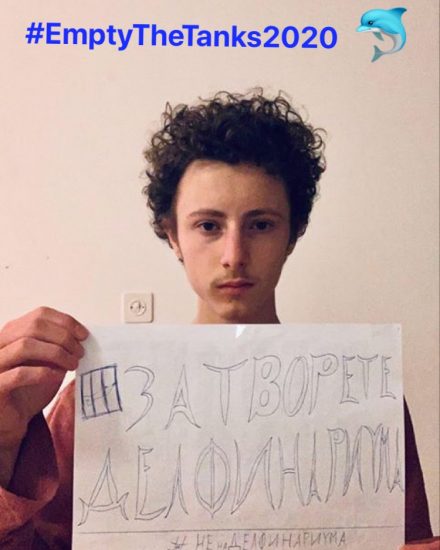 #EmptyTheTanks2020
ЗАТВОРЕТЕ
ДЕЛФИНАРИУМА
# НЕ на ДЕЛФИНАРИУМА